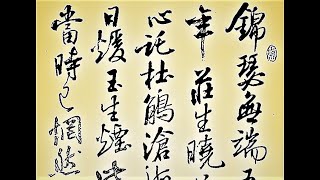 錦瑟無端五
年莊生曉
心託杜鵑滄海
日煖玉生煙
當時已惘然